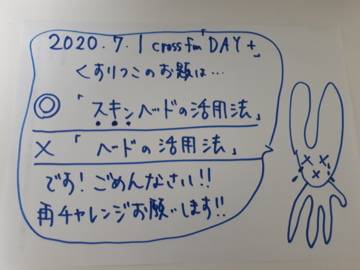 2020.7.1 cross fm「DAY+」
くすりつこのお題は…
◎「スキンヘッドの活用法」
×「ヘッドの活用法」
です！ごめんなさい!!
再チャレンジお願いします!!